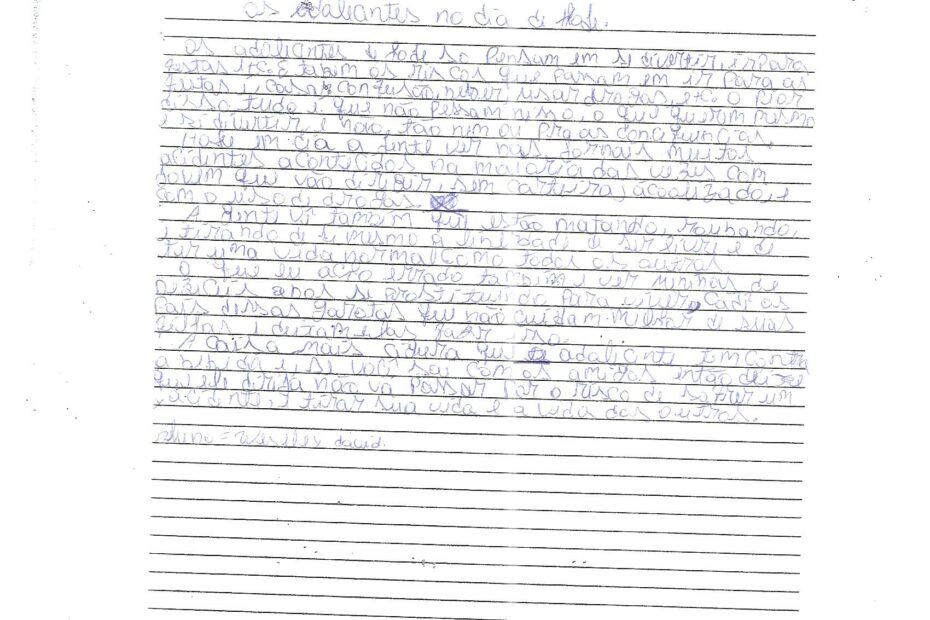 os adalecantes no dia de hoje.
os adalecantes de hoje so pensam em se divertir, ir para
festas etc. E tabem os riscos que passam em ir para as
festas e, confusão, beber, usar drogas, etc. o pior
disso tudo e que não pensam nisso, o que querem mesmo
e si divertir e não, tão nem ou pra as
Hoje em dia a jente ver nas jornais muitos
acidentes acontecidos na maioria das vezes com
jovem que vão dirigir, sem carteira, e
com o uso de drogas.
A jente vi tambem que estão matando, roubando,
e tirando de si mesmo a de ser livre e de
ter uma vida normal como todos os outros
o que eu acro errado tambem e ver mininas de
anos se prostituindo para viver, cadê os
pais dessas garotas que não cuidam melhor de suas
e deixam elas fazer isso.
A coisa mais que adalecante tem contra
a bebida e, si você sai com os amigos então deixe
que ele dirija não vá passar por o risco de sofrer um
acidente, e tirar sua vida e a vida dos outros.
aluno = david.